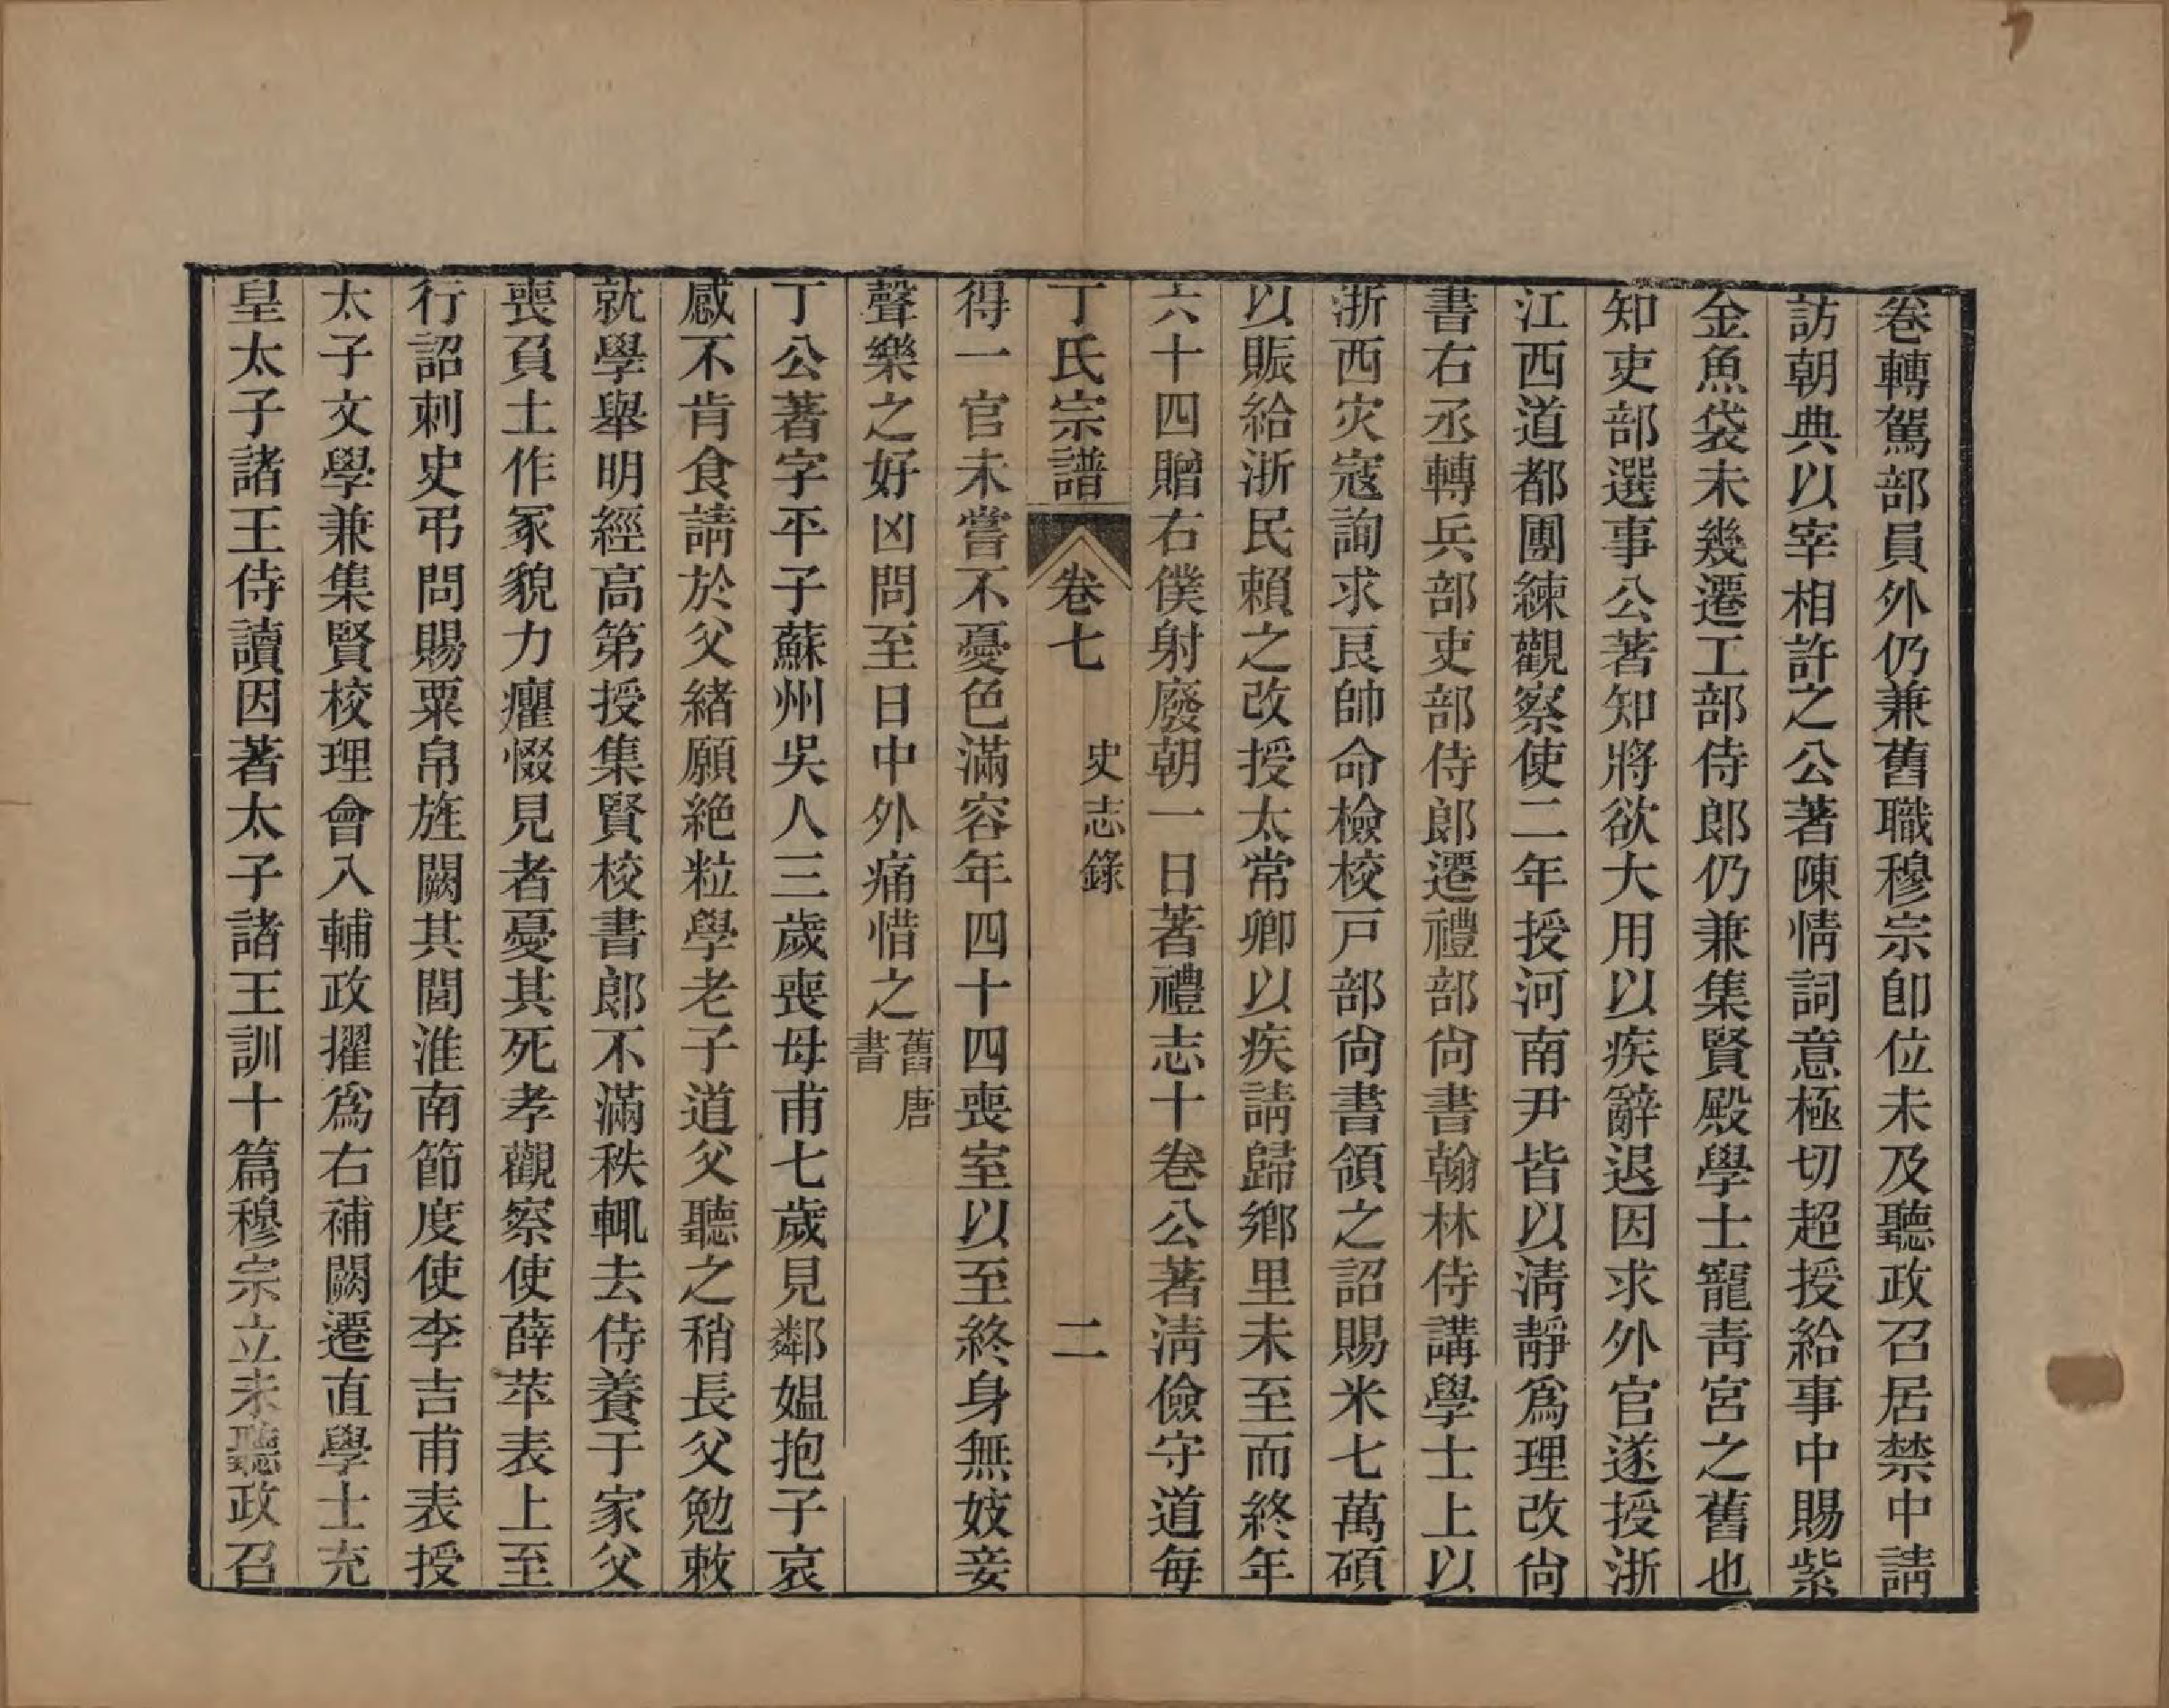 卷轉駕部員外仍兼舊職穆宗卽位未及聽政召居禁中請
訪朝典以宰相許之公著陳情詞意極切超授給事中賜紫
金魚袋未幾遷工部侍郎仍兼集賢殿學士寵青宮之舊也
知吏部選事公著知將欲大用以疾辭退因求外官遂授浙
江西道都團練觀察使二年授河南尹皆以淸靜爲理改尙
書右丞轉兵部吏部侍郎遷禮部尙書翰林侍講學士上以
浙西灾寇詢求良帥命檢校戸部尙書領之詔賜米七萬碩
以賑給浙民賴之改授太常卿以疾請歸鄉里未至而終年
六十四贈右僕射廢朝一日著禮志十卷公著淸儉守道每
丁氏宗譜 卷七 史志錄 二
得一官未嘗不憂色滿容年四十四喪室以至終身無妓妾
聲樂之好凶問至日中外痛惜之舊唐書
丁公著字平子蘇州吳人三歲喪母甫七歲見鄰媼抱子哀
感不肯食請於父緒願絶粒學老子道父聽之稍長父勉敕
就學舉明經高第授集賢校書郎不滿秩輒去侍養于家父
喪負土作冢貌力癯惙見者憂其死孝觀察使薛苹表上至
行詔刺史弔問賜粟帛旌闕其閭淮南節度使李吉甫表授
太子文學兼集賢校理會入輔政擢爲右補闕遷直學士充
皇太子諸王侍讀因著太子諸王訓十篇穆宗立未聽政召